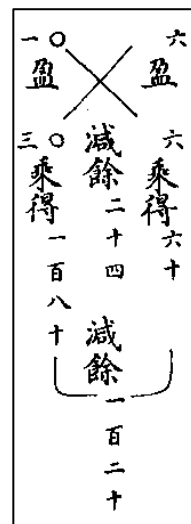 六盈
六乘得六十
減餘二十四
減餘一百二十
一〇盈
三〇乘得一百八十